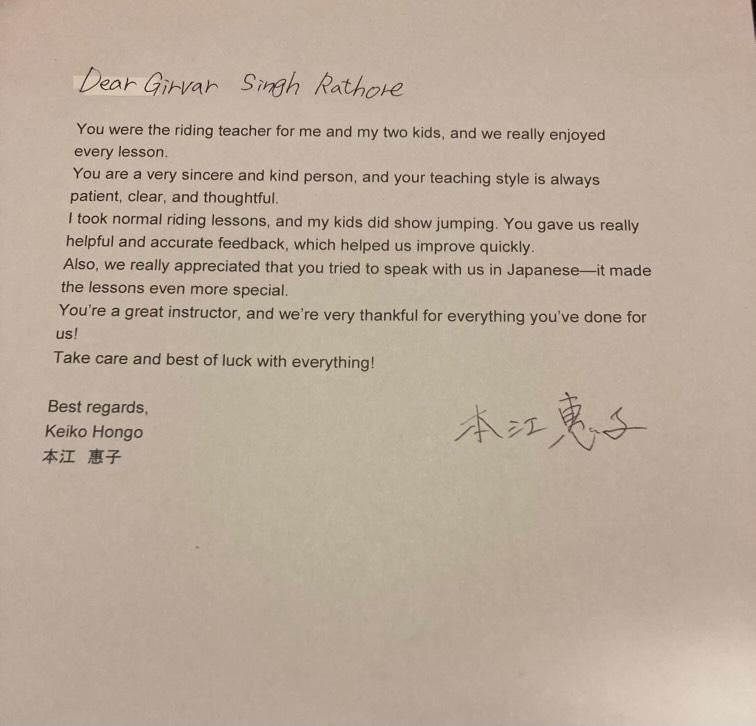 Dear Girvar Singh Rathore
You were the riding teacher for me and my two kids, and we really enjoyed
every lesson.
You are a very sincere and kind person, and your teaching style is always
patient, clear, and thoughtful.
I took normal riding lessons, and my kids did show jumping. You gave us really
helpful and accurate feedback, which helped us improve quickly.
Also, we really appreciated that you tried to speak with us in Japanese—it made
the lessons even more special.
You're a great instructor, and we're very thankful for everything you've done for
us!
Take care and best of luck with everything!
Best regards,
Keiko Hongo
本江 惠子
本江恵子